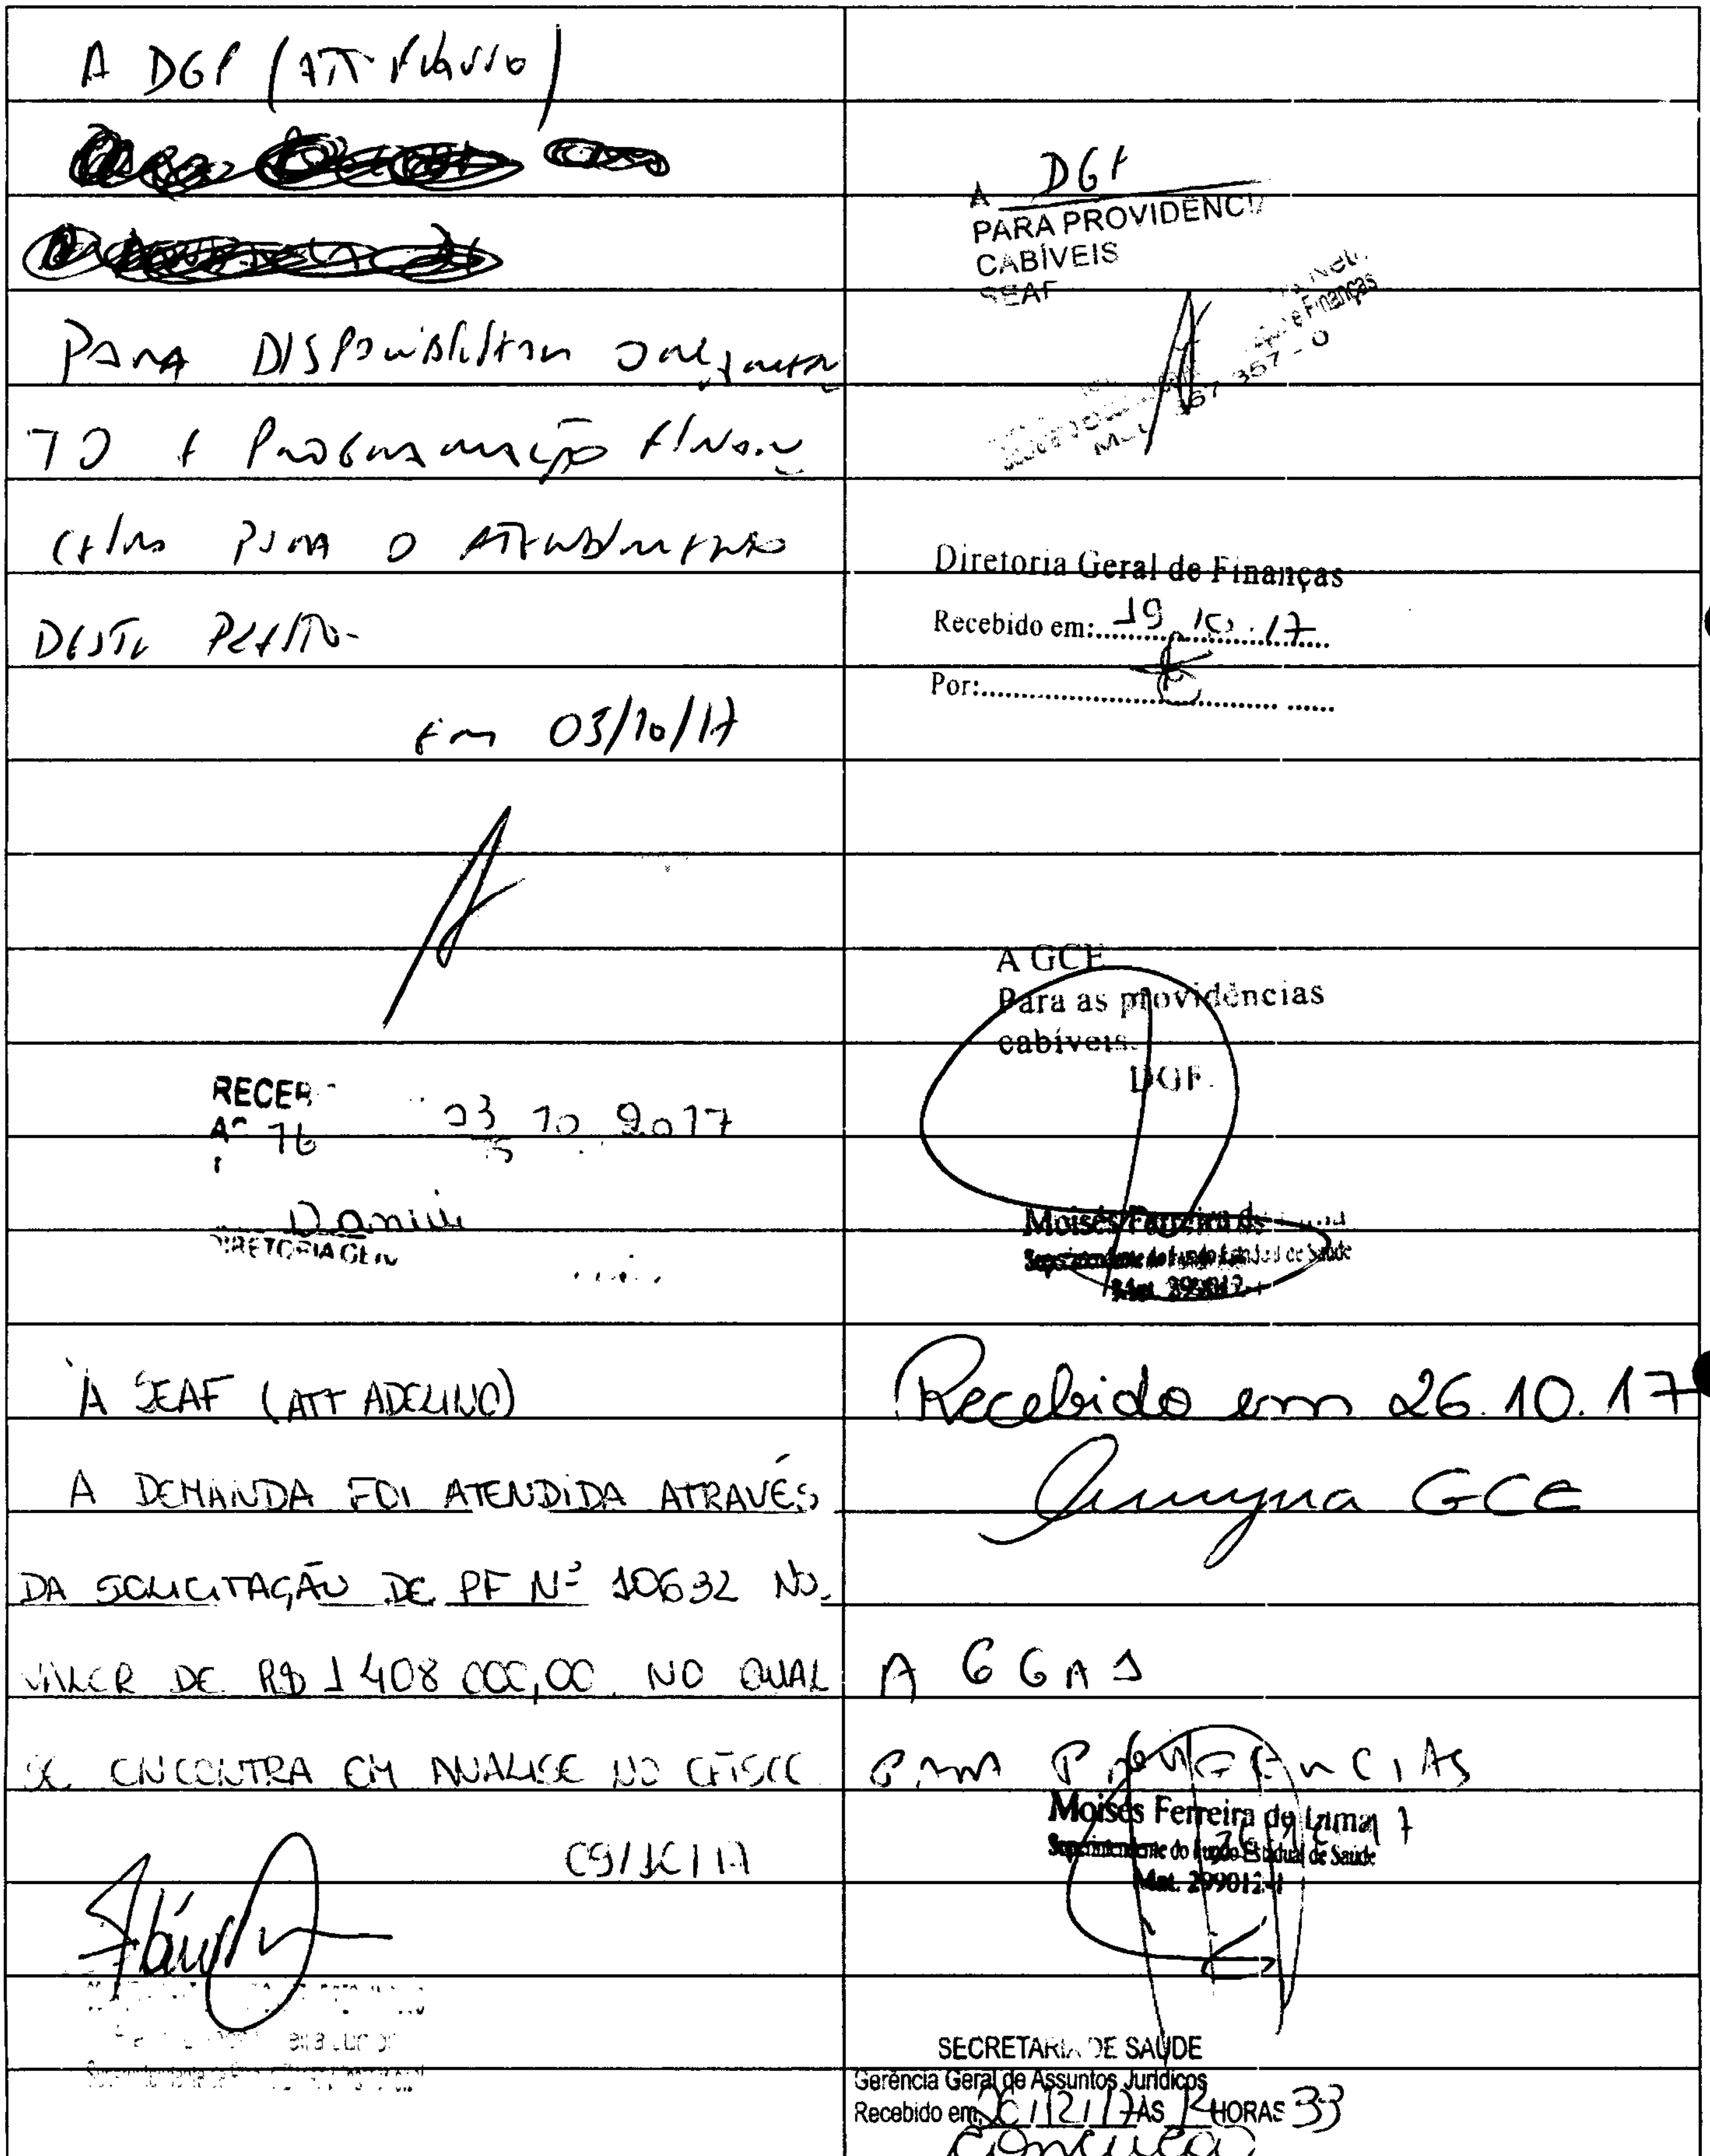 A DGP (ATT Flávio)
PARA DISPONIBILIZAR ORÇAMEN
TO E PROGRAMAÇÃO FINAN
CEIRA PARA O ATENDIMENTO
DESTE PLEITO.
Em 03/10/17
03 10 2017
16
DIRETORIA
À SEAF (ATT ADELINO)
A DEMANDA FOI ATENDIDA ATRAVÉS
DA SOLICITAÇÃO DE PF Nº 10632 NO
VALOR DE R$ 1 408 000,00. NO QUAL
SE ENCONTRA EM ANALISE NO
09/10/17
A DGF
PARA PROVIDÊNCI
CABÍVEIS
SEAF
e Finanças
357-0
Diretoria Geral de Finanças
Recebido em: 19.10.17
Por:
A GCE
Para as providências
cabíveis.
DGF.
Moisés Ferreira de
Superintendente do Fundo Estadual de Saúde
Mat. 299012-1
Recebido em 26.10.17
GCE
A GGAJ
PARA PROVIDENCIAS
Moisés Ferreira de Lima
Superintendente do Fundo Estadual de Saúde
Mat. 299012-1
SECRETARIA DE SAÚDE
Gerência Geral de Assuntos Jurídicos
Recebido em ÀS HORAS 33